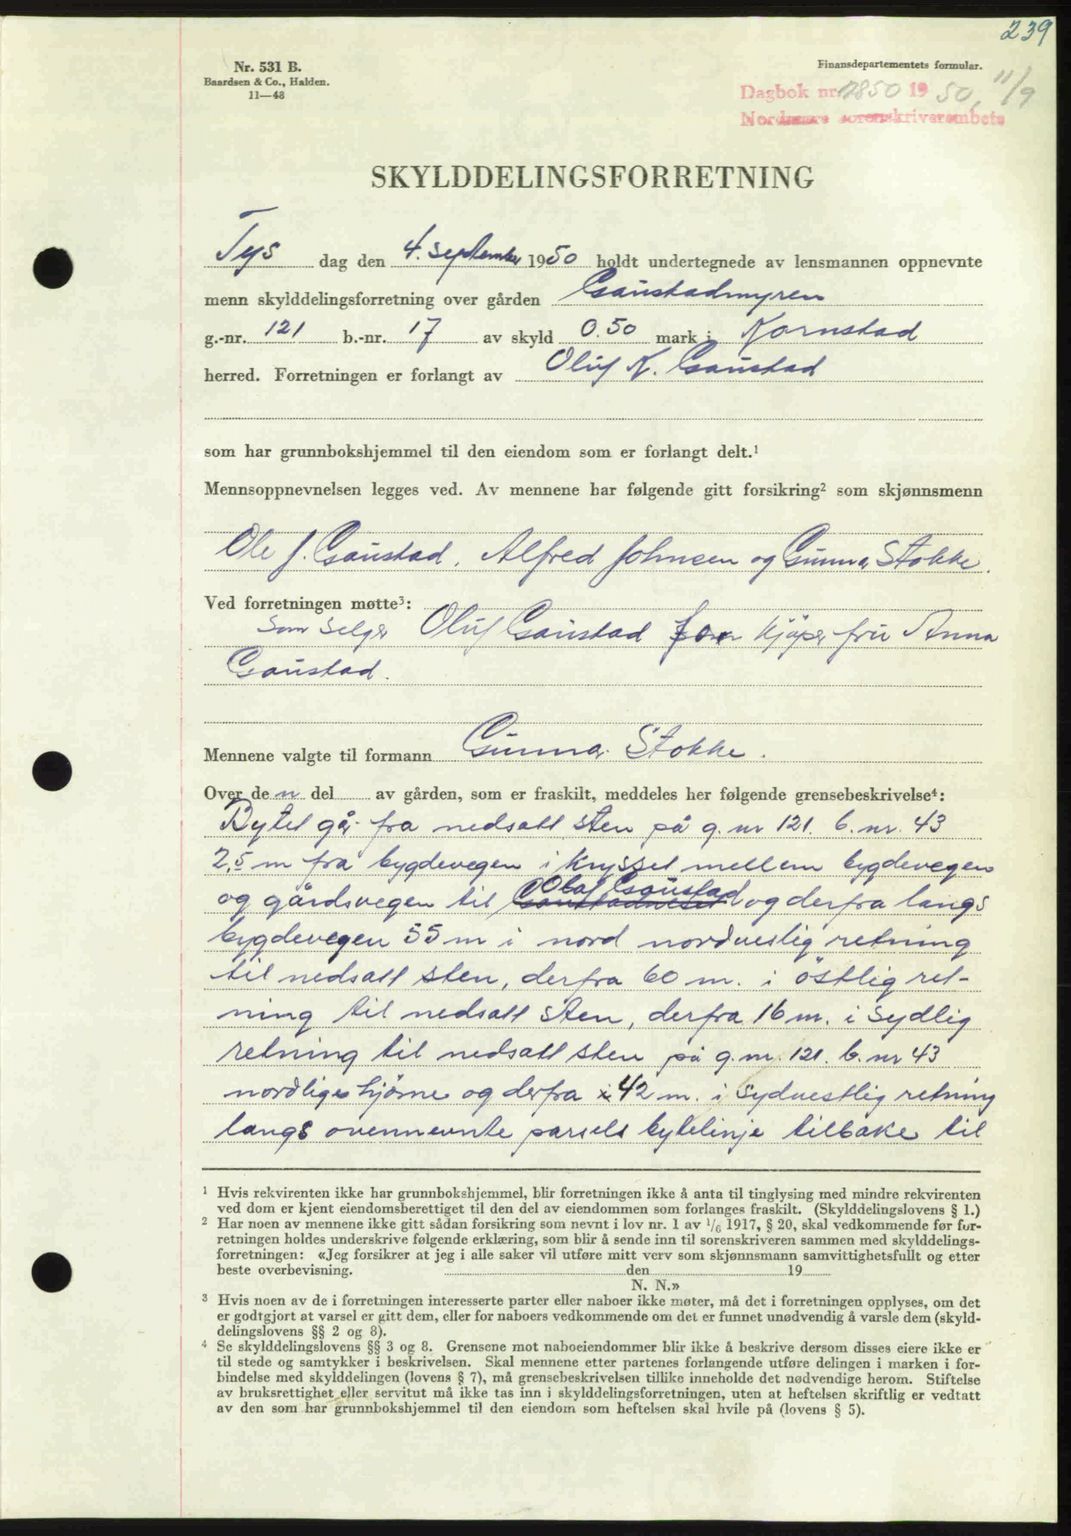 239
Nr. 531 B.
Baardsen & Co., Halden.
11—48
Finansdepartementets formular.
Dagbok nr. 2850 1950, 11/9
Nordmøre sorenskriverembete
SKYLDDELINGSFORRETNING
Tys dag den 4. september 1950 holdt undertegnede av lensmannen oppnevnte
menn skylddelingsforretning over gården Gaustadmyren
g.-nr. 121 b.-nr. 17 av skyld 0.50 mark i Kornstad
herred. Forretningen er forlangt av Oluf K. Gaustad
som har grunnbokshjemmel til den eiendom som er forlangt delt.¹
Mennsoppnevnelsen legges ved. Av mennene har følgende gitt forsikring² som skjønnsmenn
Ole J. Gaustad, Alfred Johnsen og Gunnar Stokke.
Ved forretningen møtte³:
Som Selger Oluf Gaustad for kjøper fru Anna
Gaustad.
Mennene valgte til formann Gunnar Stokke.
Over den del av gården, som er fraskilt, meddeles her følgende grensebeskrivelse⁴:
Bytet går fra nedsatt sten på g.nr 121. b.nr. 43
2,5 m fra bygdevegen i krysset mellem bygdevegen
og gårdsvegen til Olaf Gaustad og derfra langs
bygdevegen 55 m i nord nordvestlig retning
til nedsatt sten, derfra 60 m. i östlig ret-
ning til nedsatt sten, derfra 16 m. i sydlig
retning til nedsatt sten på g.nr. 121. b.nr 43
nordliges hjörne og derfra 42 m. i sydvestlig retning
langs ovennevnte parsels bytelinje tilbake til
¹ Hvis rekvirenten ikke har grunnbokshjemmel, blir forretningen ikke å anta til tinglysing med mindre rekvirenten
ved dom er kjent eiendomsberettiget til den del av eiendommen som forlanges fraskilt. (Skylddelingslovens § 1.)
² Har noen av mennene ikke gitt sådan forsikring som nevnt i lov nr. 1 av 1/6 1917, § 20, skal vedkommende før for-
retningen holdes underskrive følgende erklæring, som blir å sende inn til sorenskriveren sammen med skylddelings-
forretningen: «Jeg forsikrer at jeg i alle saker vil utføre mitt verv som skjønnsmann samvittighetsfullt og etter
beste overbevisning. den 19
N. N.»
³ Hvis noen av de i forretningen interesserte parter eller naboer ikke møter, må det i forretningen opplyses, om det
er godtgjort at varsel er gitt dem, eller for naboers vedkommende om det er funnet unødvendig å varsle dem (skyld-
delingslovens §§ 2 og 8).
⁴ Se skylddelingslovens §§ 3 og 8. Grensene mot naboeiendommer blir ikke å beskrive dersom disses eiere ikke er
til stede og samtykker i beskrivelsen. Skal mennene etter partenes forlangende utføre delingen i marken i for-
bindelse med skylddelingen (lovens § 7), må grensebeskrivelsen tillike inneholde det nødvendige herom. Stiftelse
av bruksrettighet eller servitut må ikke tas inn i skylddelingsforretningen, uten at heftelsen skriftlig er vedtatt
av den som har grunnbokshjemmel til den eiendom som heftelsen skal hvile på (lovens § 5).